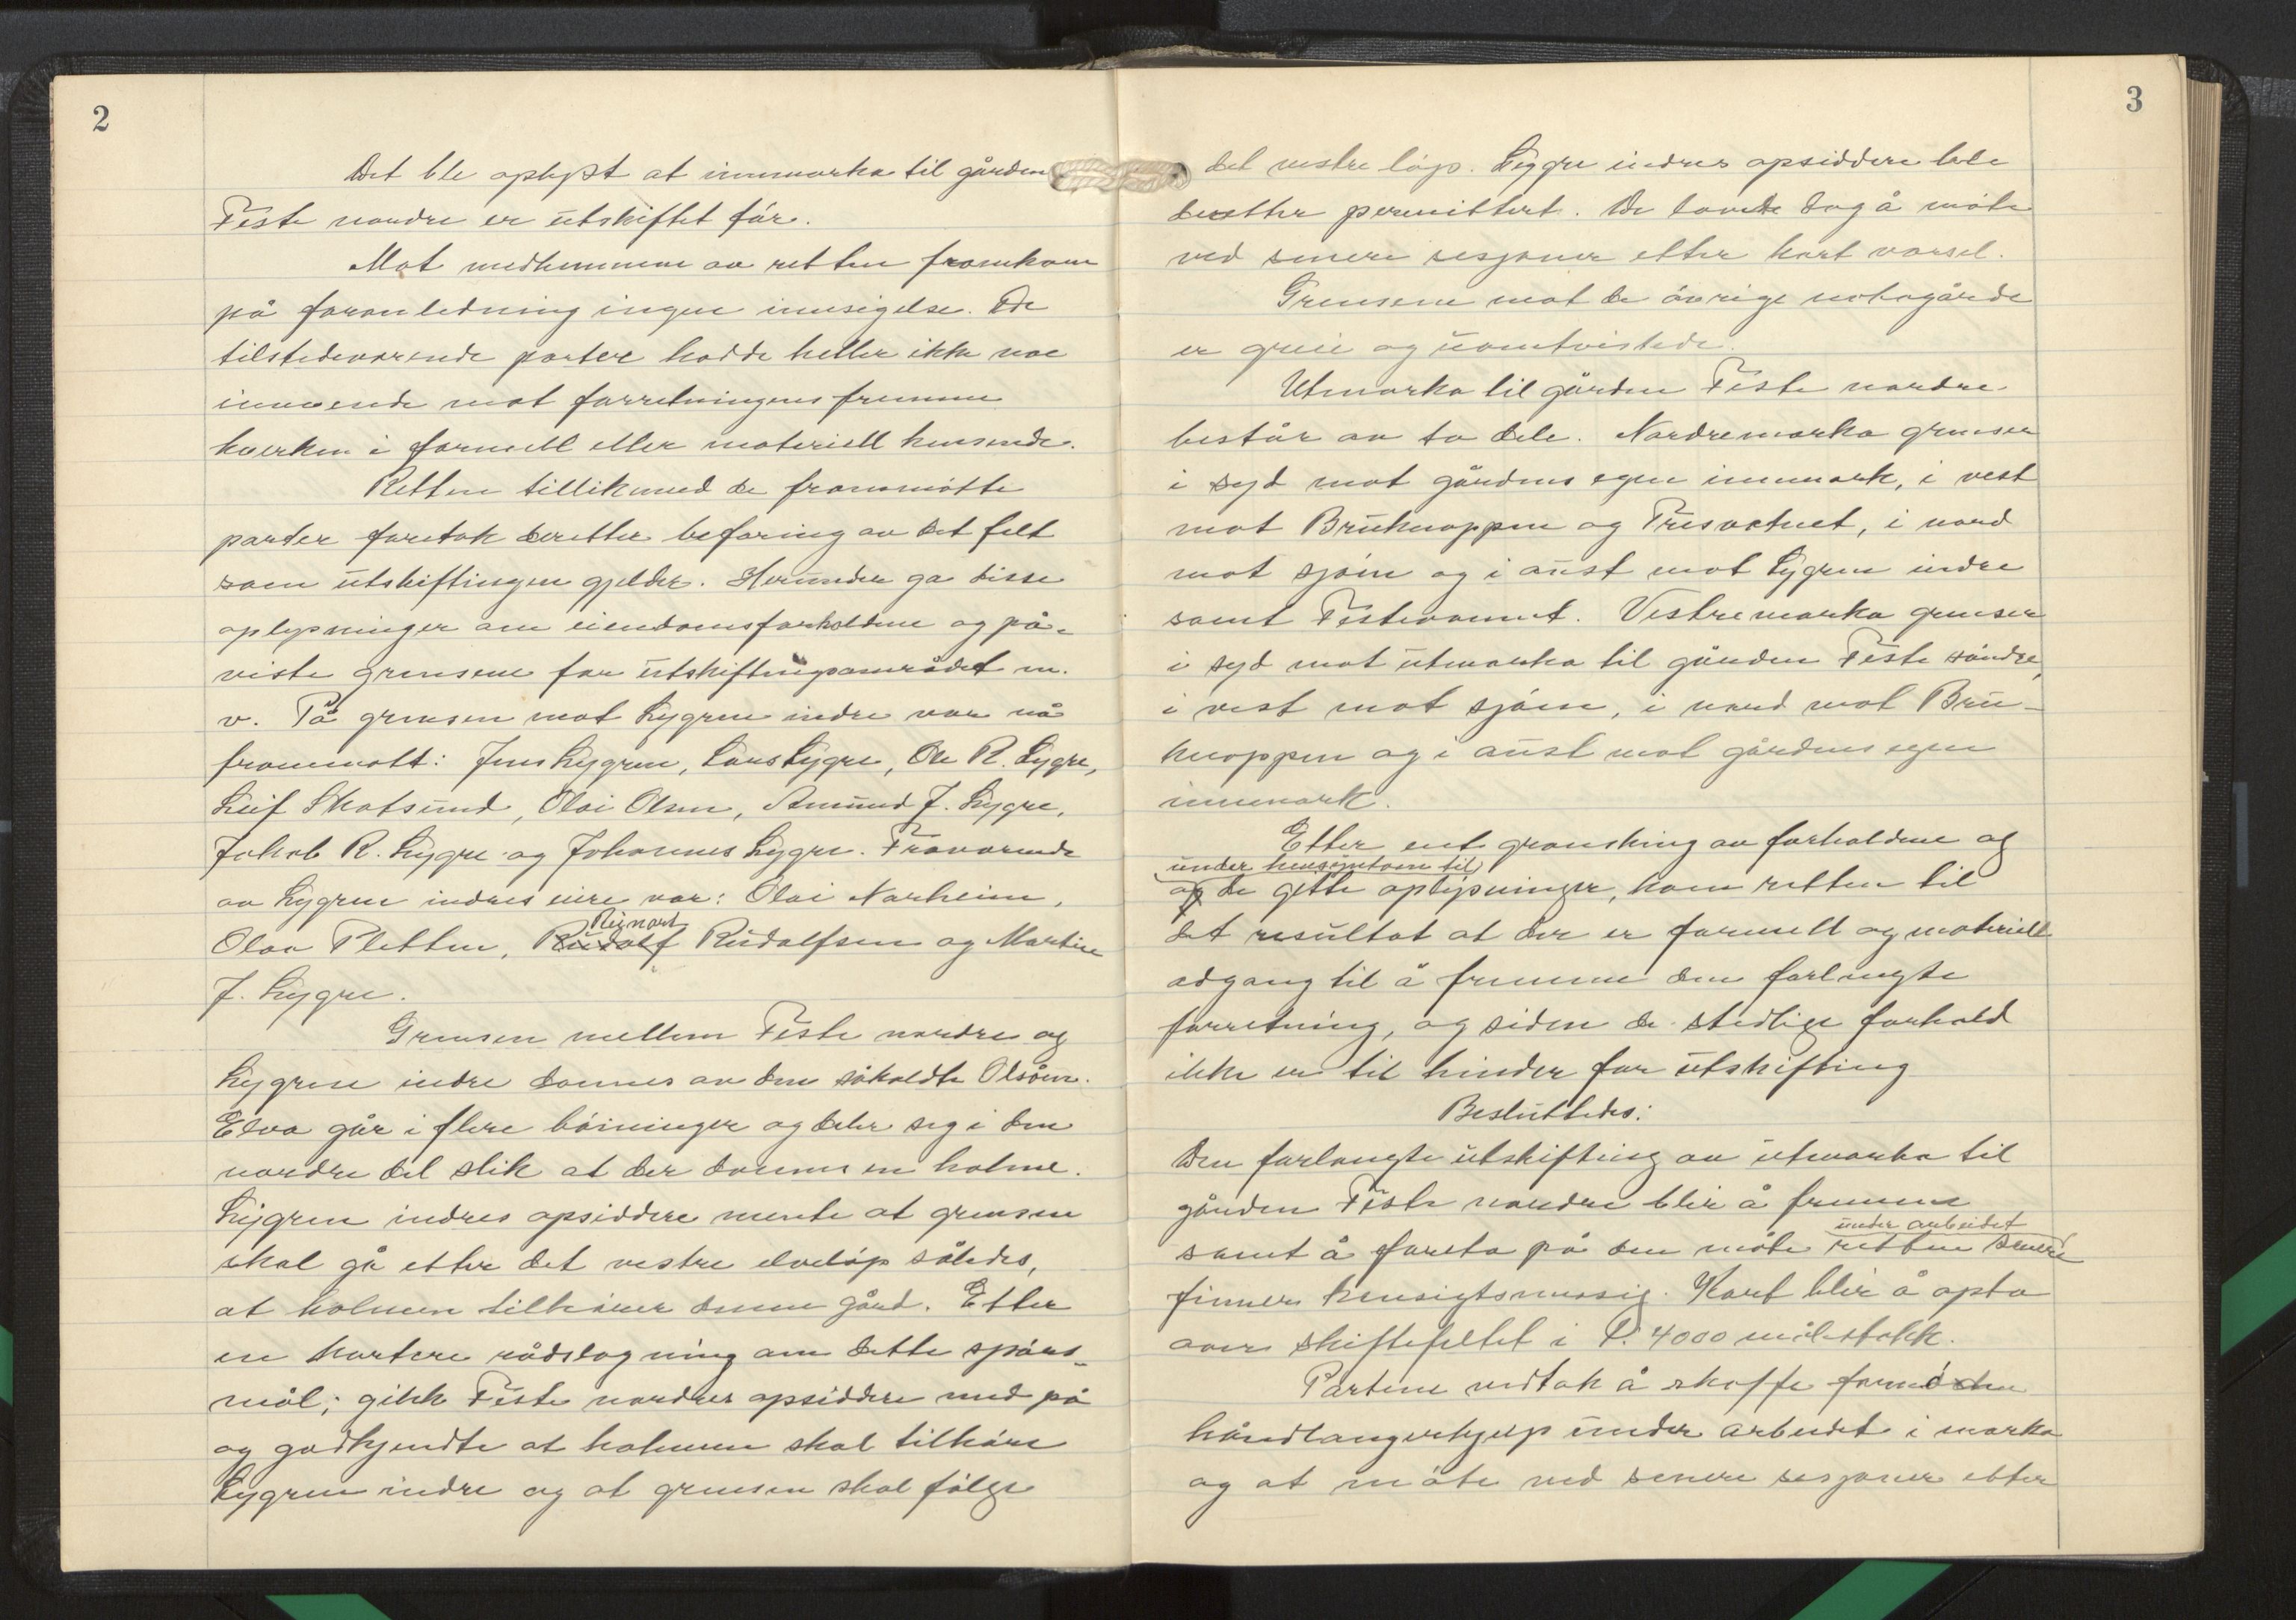 2
Det ble oplyst at innmarka til gården
Feste nordre er utskiftet før.
Mot medlemmene av retten framkom
på foranledning ingen innsigelse. De
tilstedeværende parter hadde heller ikke noe
innvende mot forretningens fremme
hverken i formell eller materiell henseende.
Retten tillikemed de frammøtte
parter foretok deretter befaring av det felt
som utskiftingen gjelder. Herunder ga disse
oplysninger om eiendomsforholdene og på-
viste grensene for utskiftingsområdet m.
v. På grensen mot Lygren indre var nå
frammøtt: Jens Lygren, Lars Lygre, Ole R. Lygre,
Leif Skatsund, Olai Olsen, Amund J. Lygre,
Jakob R. Lygre og Johannes Lygre. Fraværende
av Lygren indres eiere var: Olai Narheim,
Reinart
Olav Pletten, Rudolf Rudolfsen og Martin
J. Lygre.
Grensen mellem Feste nordre og
Lygren indre dannes av den såkaldte Olsåen.
Elva går i flere bøininger og deler seg i den
nordre del slik at der dannes en holme.
Lygren indres opsiddere mente at grensen
skal gå etter det vestre elveløp således,
at holmen tilhører denne gård. Etter
en kortere rådslagning om dette spørs-
mål, gikk Feste nordres opsiddere med på
og godkjendte at holmen skal tilhøre
Lygren indre og at grensen skal følge
3
det vestre løp. Lygre indres opsiddere ble
deretter permittert. De lovde dog å møte
ved senere sesjoner etter kort varsel.
Grensene mot de øvrige nabogårde
er greie og uomtvistede.
Utmarka til gården Feste nordre
består av to dele. Nordremarka grenser
i syd mot gårdens egen innmark, i vest
mot Bruknappen og Prisvatnet, i nord
mot sjøen og i aust mot Lygren indre
samt Festevannet. Vestremarka grenser
i syd mot utmarka til gården Feste søndre,
i vest mot sjøen, i nord mot Bru-
knappen og i aust mot gårdens egen
innmark.
Etter ent gransking av forholdene og
under hensyntaen til
op de gitte oplysninger, kom retten til
det resultat at der er formell og materiell
adgang til å fremme den forlangte
forretning, og siden de stedlige forhold
ikke er til hinder for utskifting
Besluttedes:
Den forlangte utskifting av utmarka til
gården Feste nordre blir å fremme
under arbeidet
samt å foreta på den måte retten senere
finner hensigtsmessig. Kart blir å opta
over skiftefeltet i 1: 4000 målestokk.
Partene vedtok å skaffe fornøden
håndlangerhjelp under arbeidet i marka
og at møte ved senere sesjoner etter